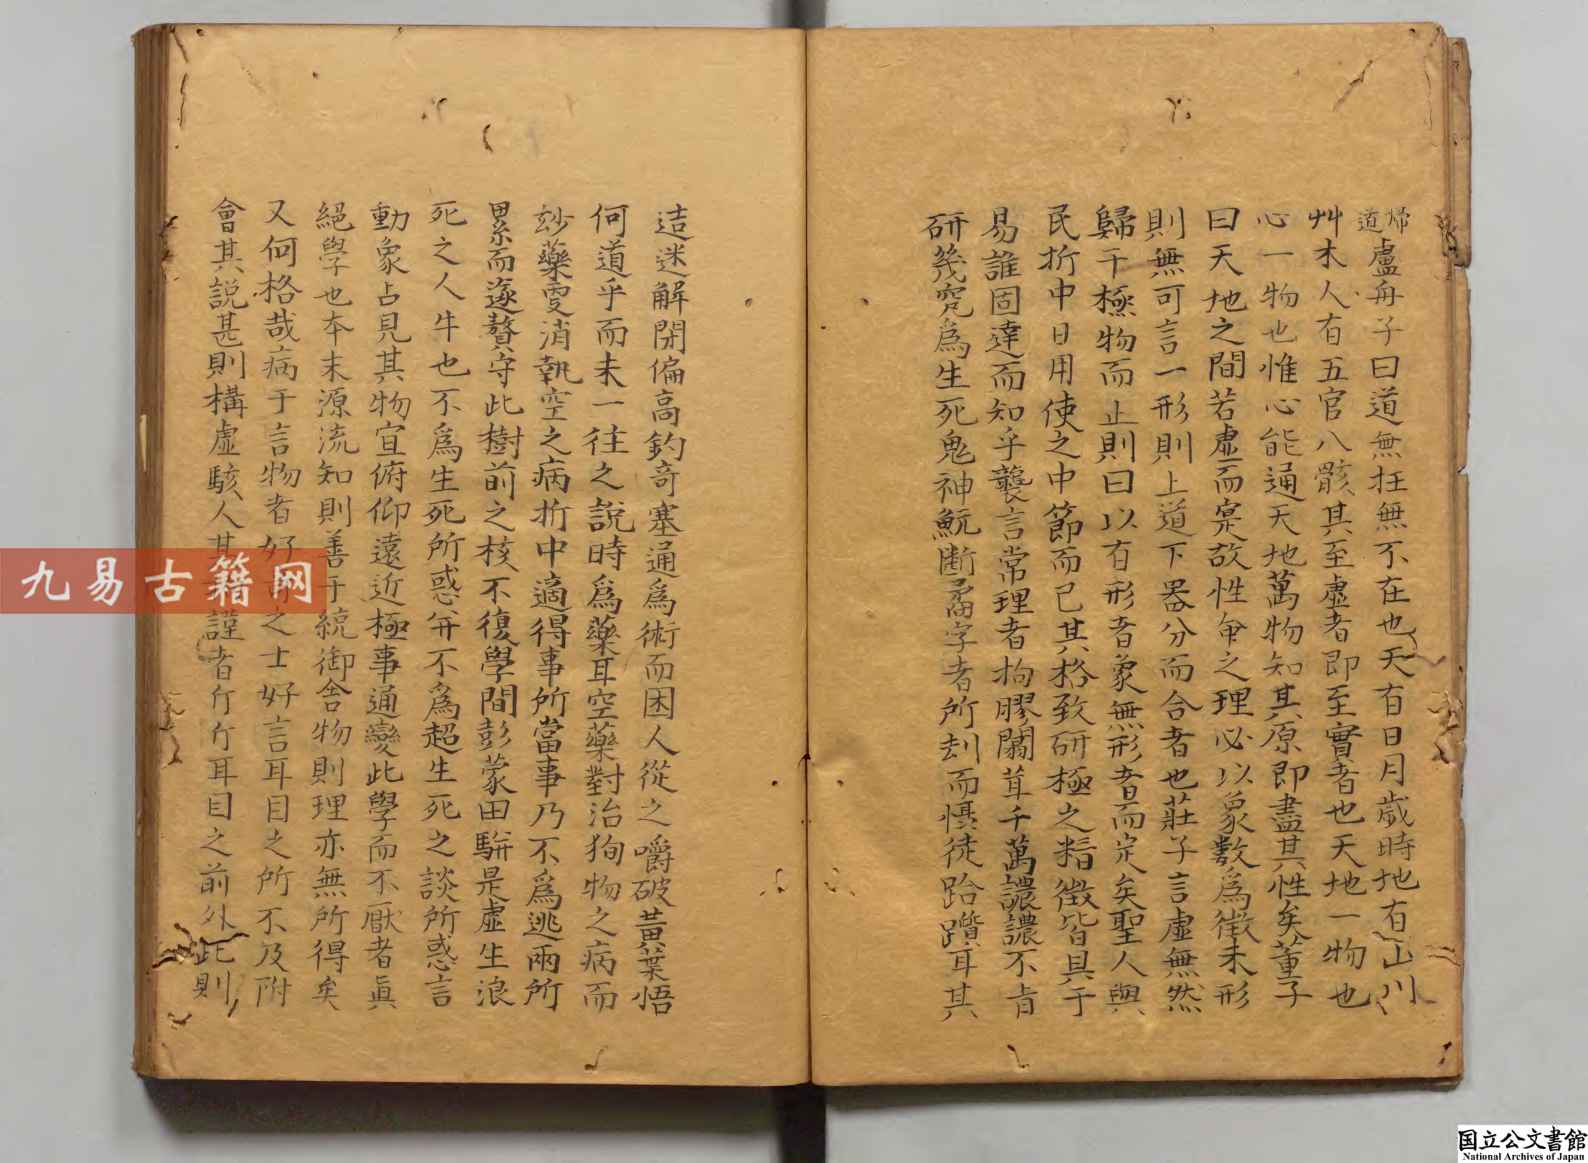 歸道盧舟子曰道無在無不在也天有日月歲時地有山川
艸木人有五官八骸其至虛者即至實者也天地一物也
心一物也惟心能通天地萬物知其原即盡其性矣董子
曰天地之間若虛而寔故性命之理必以象數為徵未形
則無可言一形則上道下器分而合者也莊子言虛無然
歸于極物而止則曰以有形者象無形者而定矣聖人與
民折中日用使之中節而已其格致研極之精微皆具于
易誰固達而知乎襲言常理者拘膠闒茸千萬譨譨不肯
研幾究為生死鬼神魭斷矞字者所刦而慑徒跲躓耳其
迼迷解閉偏高釣奇塞通為術而困人從之嚼破黃葉悟
何道乎而未一往之說時為藥耳空藥對治狥物之病而
玅藥雯消執空之病折中適得事所當事乃不為逃兩所
累而遂贅守此樹前之核不復學間彭蒙田駢是虛生浪
死之人牛也不為生死所惑并不為超生死之談所惑言
動象占見其物宜俯仰遠近極事通變此學而不厭者真
絕學也本末源流知則善于統御舍物則理亦無所得矣
又何格哉病于言物者好之士好言耳目之所不及附
會其說甚則構虛駭人其謹者斤斤耳目之前外此則
九易古籍网
国立公文書館
National Archives of Japan